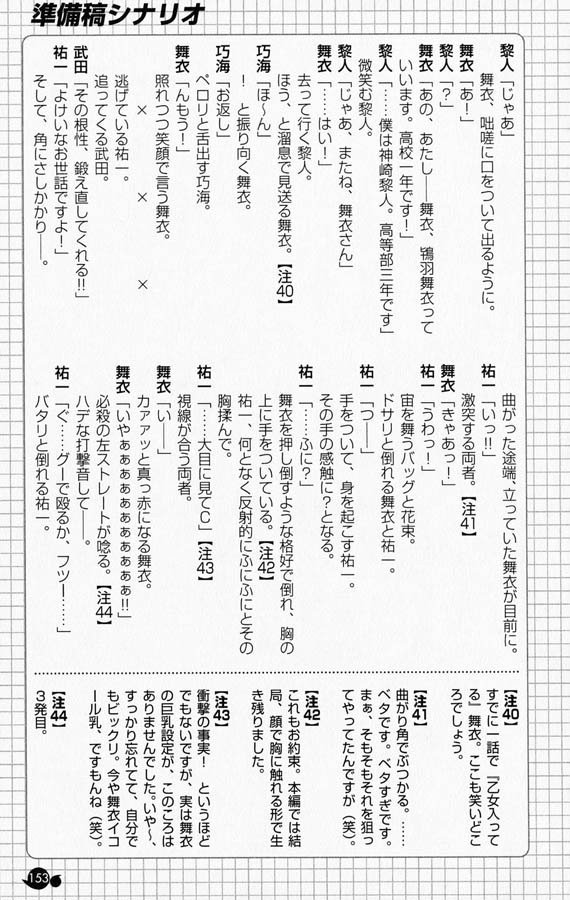 準備稿シナリオ
黎人「じゃあ」
舞衣、咄嗟に口をついて出るように。
舞衣「あ!」
黎人「?」
舞衣「あの、あたし――舞衣、鴇羽舞衣って
いいます。高校一年です!」
黎人「……僕は神崎黎人。高等部三年です」
微笑む黎人。
黎人「じゃあ、またね、舞衣さん」
舞衣「……はい!」
去って行く黎人。
ほう、と溜息で見送る舞衣。【注40】
巧海「ほ〜ん」
! と振り向く舞衣。
巧海「お返し」
ペロリと舌出す巧海。
舞衣「んもう!」
照れつつ笑顔で言う舞衣。
× × ×
逃げている祐一。
追ってくる武田。
武田「その根性、鍛え直してくれる!!」
祐一「よけいなお世話ですよ!」
そして、角にさしかかり――。
曲がった途端、立っていた舞衣が目前に。
祐一「いっ!!」
激突する両者。【注41】
舞衣「きゃあっ!」
祐一「うわっ!」
宙を舞うバッグと花束。
ドサリと倒れる舞衣と祐一。
祐一「つ――」
手をついて、身を起こす祐一。
その手の感触に?となる。
祐一「……ふに?」
舞衣を押し倒すような格好で倒れ、胸の
上に手をついている。【注42】
祐一、何となく反射的にふにふにとその
胸揉んで。
祐一「……大目に見てC」【注43】
視線が合う両者。
舞衣「い――」
カァァッと真っ赤になる舞衣。
舞衣「いやぁぁぁぁぁぁぁぁぁぁ!!」
必殺の左ストレートが唸る。【注44】
ハデな打撃音して――。
祐一「ぐ……グーで殴るか、フツー……」
バタリと倒れる祐一。
【注40】
すでに一話で『乙女入って
る』舞衣。ここも笑いどこ
ろでしょう。
【注41】
曲がり角でぶつかる。……
ベタです。ベタすぎです。
まぁ、そもそもそれを狙っ
てやってたんですが(笑)。
【注42】
これもお約束。本編では結
局、顔で胸に触れる形で生
き残りました。
【注43】
衝撃の事実! というほど
でもないですが、実は舞衣
の巨乳設定が、このころは
ありませんでした。いや〜、
すっかり忘れてて、自分で
もビックリ。今や舞衣イコ
ール乳、ですもんね(笑)。
【注44】
3発目。
153